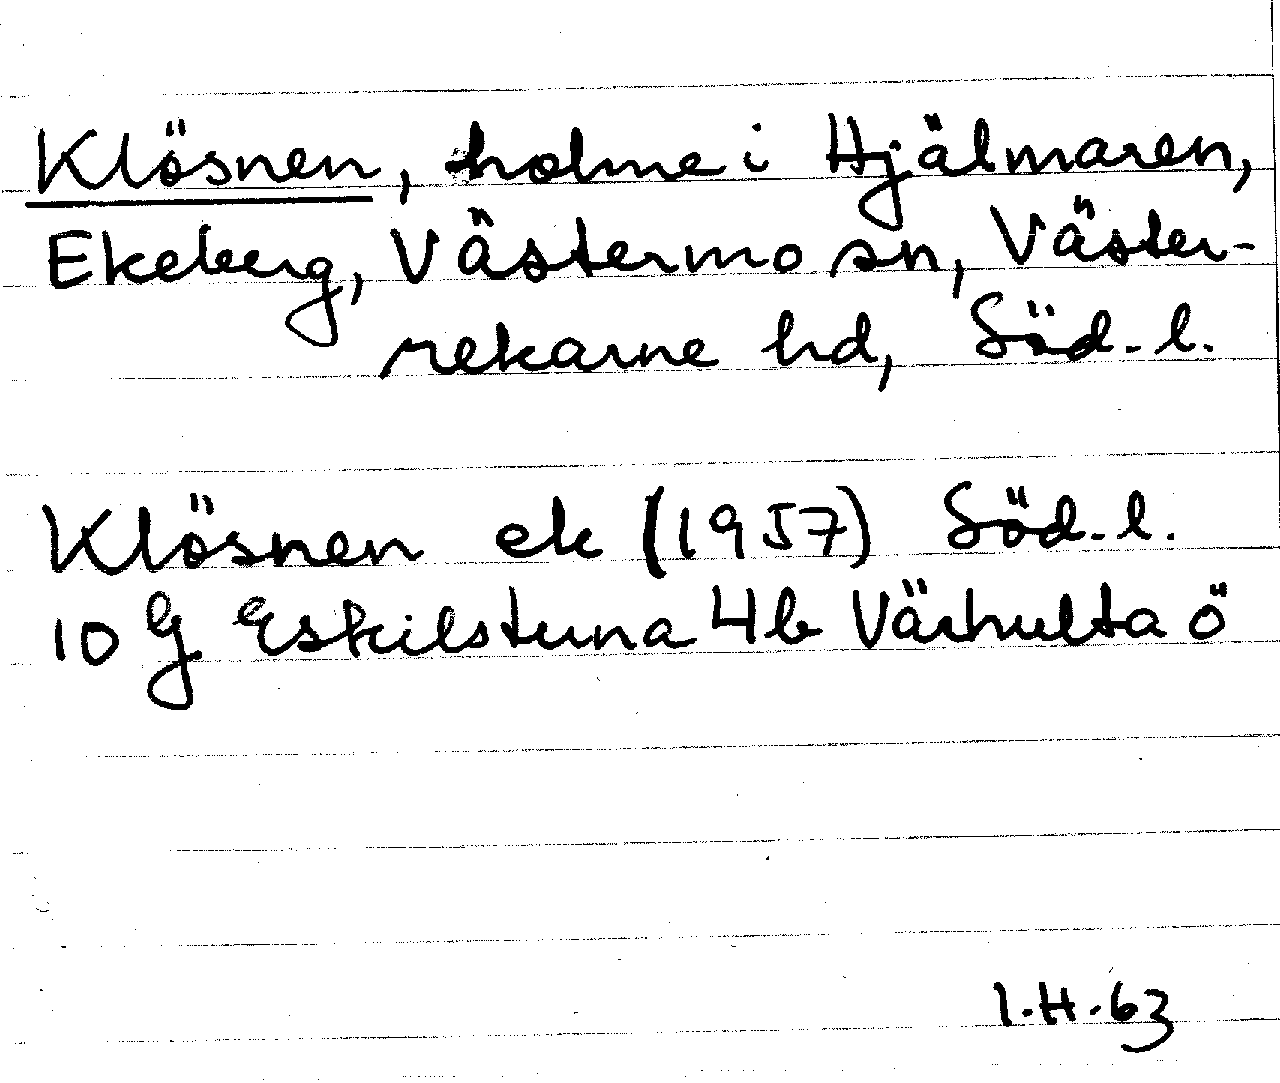 Klösnen, holme i Hjälmaren,
Ekeberg, Västermo sn, Väster-
rekarne hd, Söd. l.
Klösnen ek (1957) Söd. l.
10 G Eskilstuna 4b Värhulta ö
I.H.63